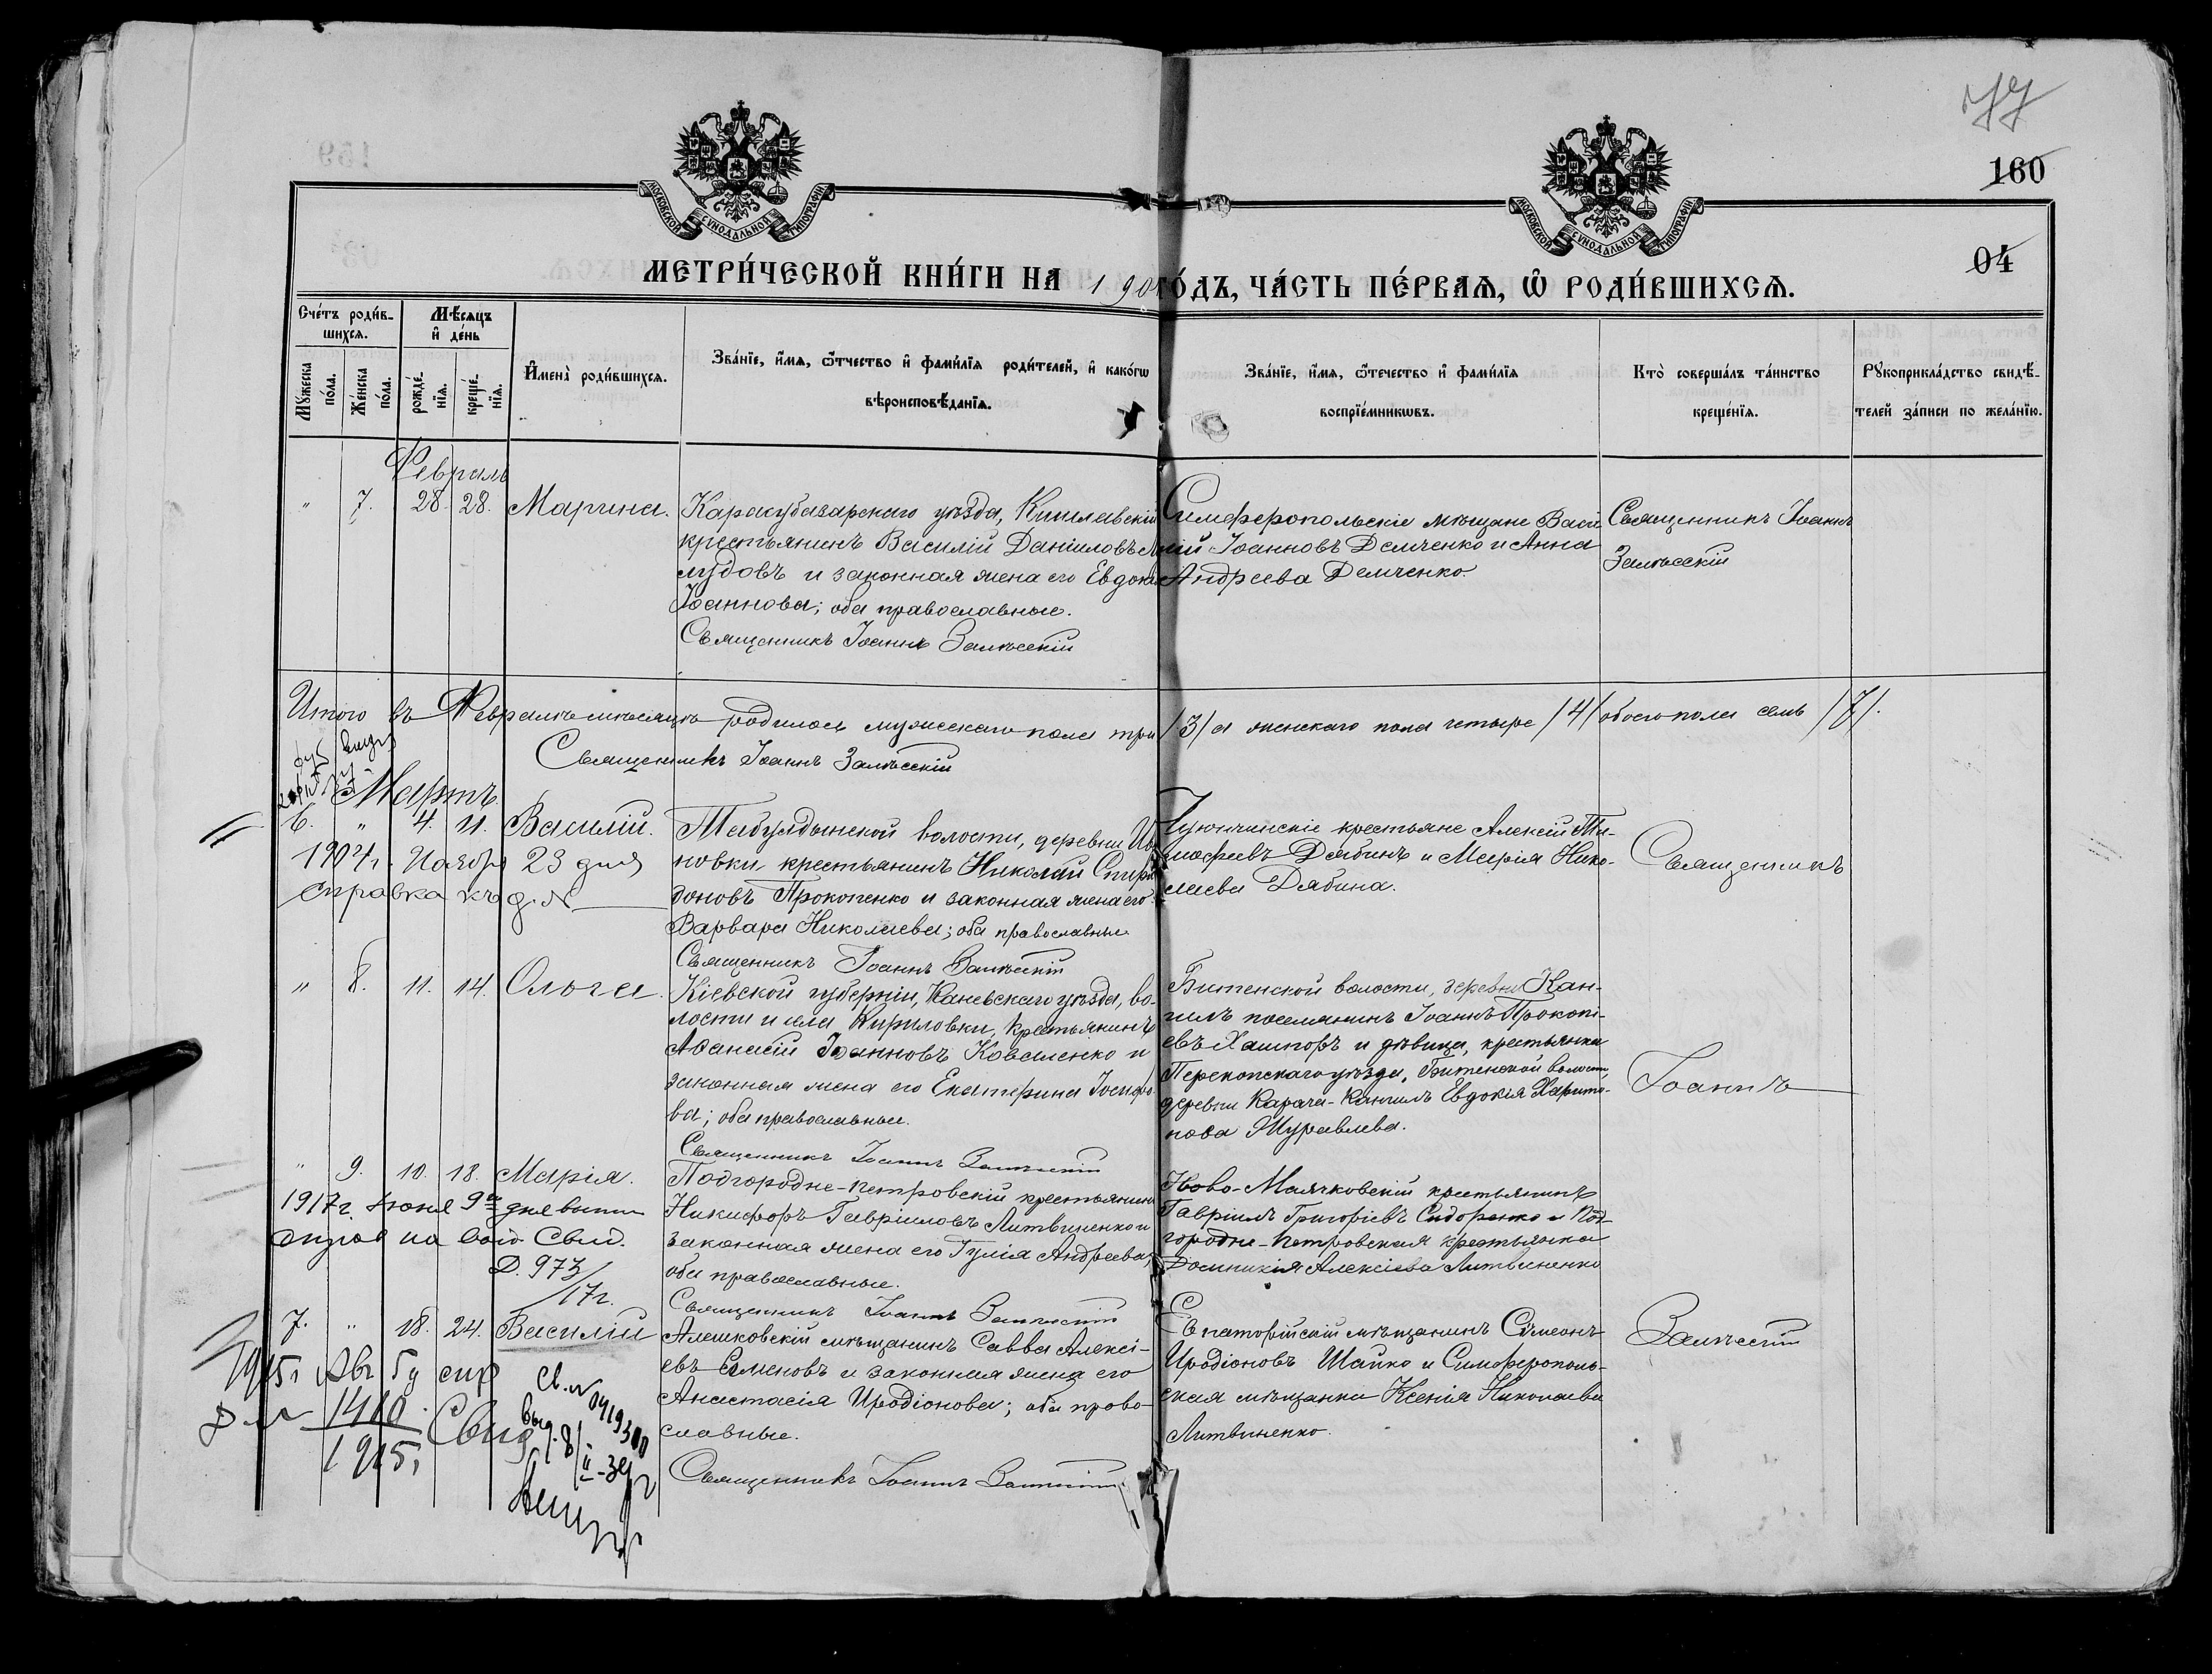 77
160
04
МОСКОВСКОЙ СУНОДАЛЬНОЙ ТИПОГРАФІИ
МОСКОВСКОЙ СУНОДАЛЬНОЙ ТИПОГРАФІИ
МЕТРИ́ЧЕСКОЙ КНИ́ГИ НА 190 ГО́ДЪ, ЧА́СТЬ ПЕ́РВАѦ, Ѡ҆ РОДИ́ВШИХСѦ.
Сче́тъ роди́в-
шихсѧ.
Мꙋ́жеска по́ла.
Же́нска по́ла.
Мѣ́сѧцъ
и҆ де́нь
рожде́-
нїѧ.
креще́-
нїѧ.
И҆мена̀ роди́вшихсѧ.
Зва́нїе, и҆́мѧ, ѻ҆́тчество и҆ фами́лїѧ роди́телей, и҆ како́гѡ
вѣроисповѣ́данїѧ.
Зва́нїе, и҆́мѧ, ѻ҆те́чество и҆ фами́лїѧ
воспрїе́мникѡвъ.
Кто̀ соверша́лъ та́инство
креще́нїѧ.
Рꙋкоприкла́дство свидѣ́-
телей за́писи по жела́нїю.
Февраль
" 7. 28. 28. Марина.
Карасубазарскаго уѣзда,
крестьянинъ Василій Даніиловъ
и законная жена его Евдокія
Іоаннова; оба православные.
Священникъ Іоаннъ Залѣсскій
Симферопольскіе мѣщане Васи
лій Іоанновъ Демченко и Анна
Андреева Демченко.
Священникъ Іоаннъ
Залѣсскій
Итого въ Февралѣ мѣсяцѣ родилось мужескаго пола три /3/ а женскаго пола четыре /4/ обоего пола семь /7/.
Священникъ Іоаннъ Залѣсскій
Мартъ
6. " 4. 11. Василій.
1904 г. Ноября 23 дня
справка къ д. №
Табулдынской волости, деревни
новки, крестьянинъ Николай Спири
доновъ Прокопенко и законная жена его
Варвара Николаева; оба православные
Священникъ Іоаннъ Залѣсскій
крестьяне Алексій Ти-
мофеевъ Дябинъ и Марія Нико-
лаева Дябина.
Священникъ
" 8. 11. 14. Ольга.
Кіевской губерніи, Каневскаго уѣзда, во-
лости и села Кириловки, крестьянинъ
Аѳанасій Іоанновъ Коваленко и
законная жена его Екатерина Іосифо
ва; оба православные.
Священникъ Іоаннъ Залѣсскій
Битенской волости, деревни Кан-
гилъ поселянинъ Іоаннъ Прокопі-
евъ и дѣвица, крестьянка
Перекопскаго уѣзда, Битенской волости,
деревни Карача-Кангилъ Евдокія Харито-
нова Журавлева.
Іоаннъ
" 9. 10. 18. Марія.
1917 г. Іюня 9го дня выпи
на Свид.
Д. 973/17 г.
Подгородне-Петровскій крестьянин
Никифоръ Гавріиловъ Литвиненко и
законная жена его Іулія Андреева;
оба православные.
Священникъ Іоаннъ Залѣсскій
Ново-Маячковскій крестьянинъ
Гавріилъ Григоріевъ Сидоренко и Под-
городне-Петровская крестьянка
Домникія Алексіева Литвиненко
7. " 18. 24. Василій
1915 г Авг 5д спр
д № 1410
1915 г
Св. № 0419300
Выд. 8/II-39 г
Алешковскій мѣщанинъ Савва Алексі-
евъ Семеновъ и законная жена его
Анастасія Иродіонова; оба право-
славные.
Священникъ Іоаннъ Залѣсскій
Евпаторійскій мѣщанинъ Сѵмеонъ
Иродіоновъ Шайко и Симферополь-
ская мѣщанка Ксенія Николаева
Литвиненко.
Залѣсскій